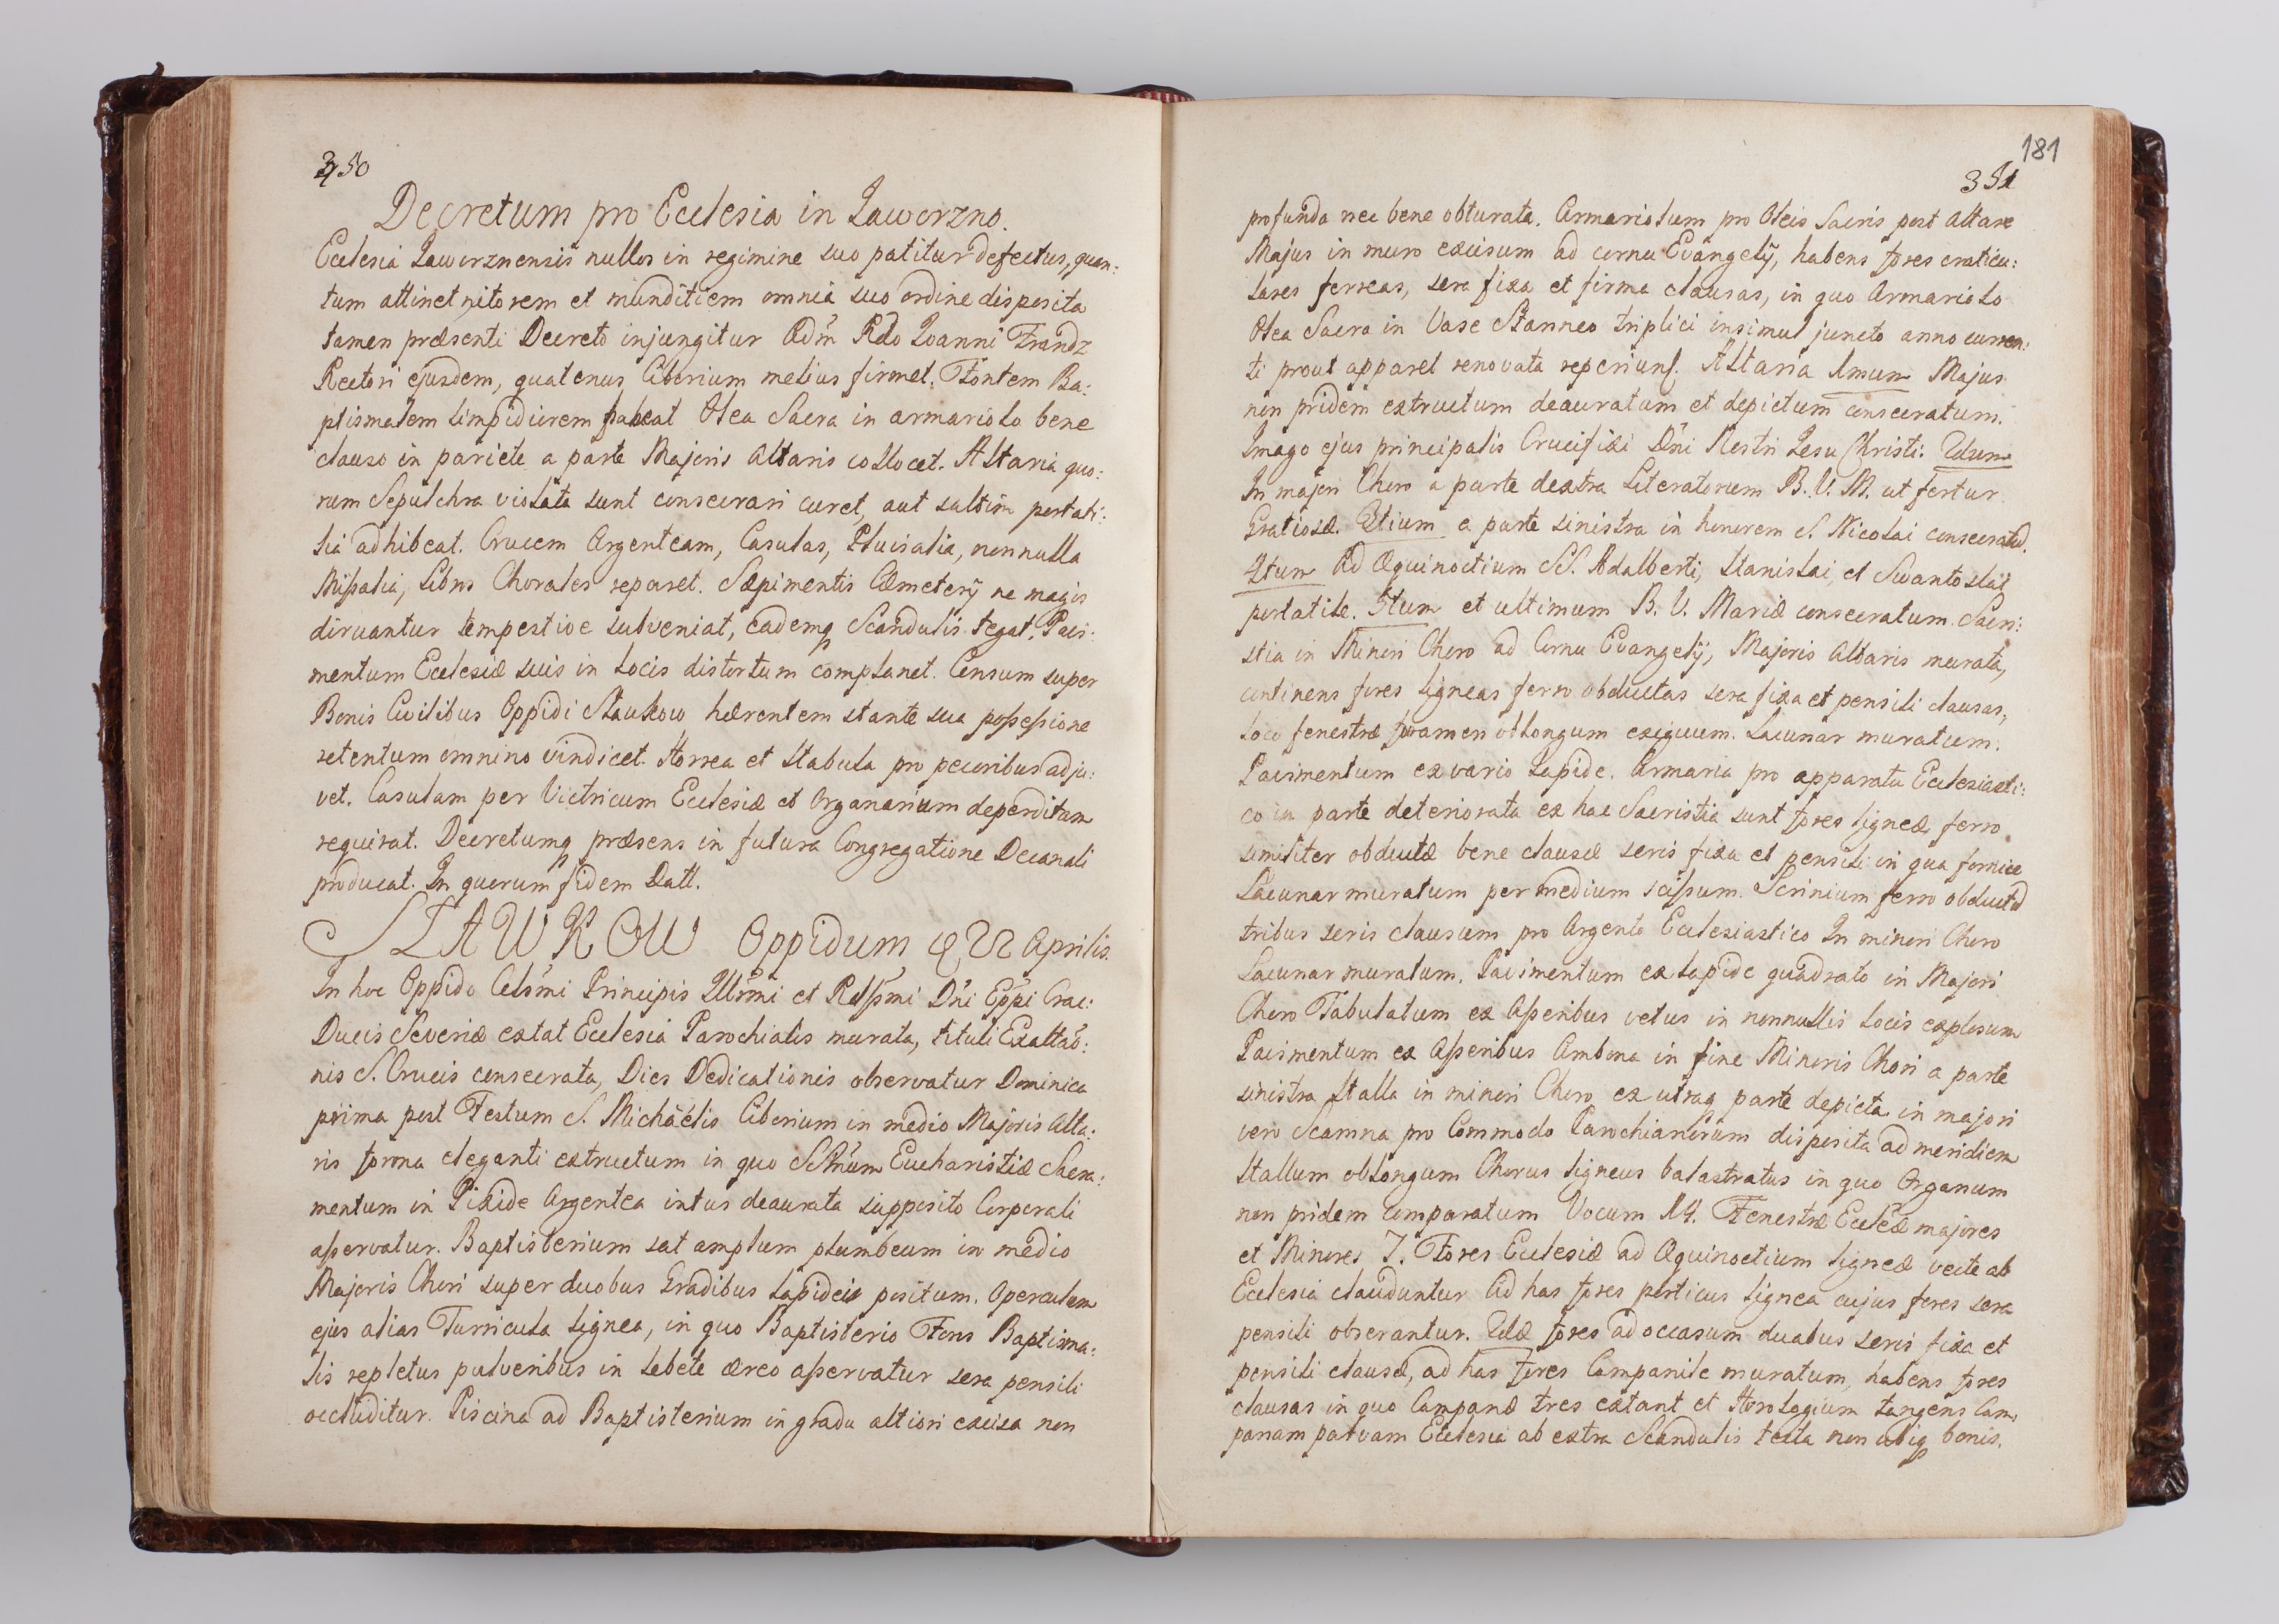 350
Decretum pro Ecclesia in Jaworzno.
Ecclesia Jaworznensis nullos in regimine suo patitur defectus, quan:
tum attinet nitorem et munditiem omnia suo ordine disposita
tamen præsenti Decreto injungitur Adm̄ Rdo Joanni Frandz
Rectori ejusdem, quatenus Ciborium melius firmet. Fontem Ba:
ptismalem limpidiorem habeat Olea Sacra in armariolo bene
clauso in pariete a parte Majoris Altaris collocet. Altaria quo:
rum Sepulchra violata sunt consecrari curet, aut saltim portati:
lia adhibeat. Crucem Argenteam, Casulas, Pluvialia, nonnulla
Missalia, Libros Chorales reparet. Sæpimentis Cæmeterÿ ne magis
diruantur tempestive subveniat, eademq Scandulis tegat. Pavi:
mentum Ecclesiæ suis in locis distortum complanet. Censum super
Bonis Civilibus Oppidi Sławkow hærentem stante sua possessione
retentum omnino vindicet. Horrea et Stabula pro pecoribus adju:
vet. Casulam per Victricum Ecclesiæ et Organarium deperditam
requirat. Decretumq præsens in futura Congregatione Decanali
producat. In quorum fidem Datt.
SŁAWKOW Oppidum 22 Aprilis.
In hoc Oppido Celsmi Principis Illrmi et Rdssmi Dni Eppi Crac:
Ducis Severiæ extat Ecclesia Parochialis murata, tituli Exaltaõ:
nis S. Crucis consecrata, Dies Dedicationis observatur Dominica
prima post Festum S. Michaëlis Ciborium in medio Majoris Alta:
ris forma eleganti extructum in quo SSmum Eucharistiæ Sacra:
mentum in Pixide Argentea intus deaurata supposito Corporali
asservatur. Baptisterium sat amplum plumbeum in medio
Majoris Chori super duobus Gradibus lapideis positum. Operculum
ejus alias Turricula lignea, in quo Baptisterio Fons Baptisma:
lis repletus pulveribus in lebete æreo asservatur sera pensili
occluditur. Piscina ad Baptisterium in gradu altiori excisa non
181
351
profunda nec bene obturata. Armariolum pro Oleis Sacris post Altare
Majus in muro excisum ad cornu Evangelÿ, habens fores craticu:
lares ferreas, sera fixa et firma clausas, in quo Armariolo
Olea Sacra in Vase Stanneo triplici insimul juncto anno curren:
ti prout apparet renovata reperiunt. Altaria 1mum Majus
non pridem extructum deauratum et depictum consecratum.
Imago ejus principalis Crucifixi Dni Nostri Jesu Christi. 2dum
In majori Choro a parte dextra Literatorum B. V. M. ut fertur
Gratiosæ. 3tium a parte sinistra in honorem S. Nicolai consecratū.
4tum Ad Æquinoctium SS. Adalberti, Stanislai, et Swantoslai
portatile. 5tum et ultimum B. V. Mariæ consecratum. Sacri:
stia in Minori Choro ad Cornu Evangelÿ, Majoris Altaris murata,
continens fores ligneas ferro obductas sera fixa et pensili clausas,
loco fenestræ foramen oblongum exiguum. Lacunar muratum.
Pavimentum ex vario lapide. Armaria pro apparatu Ecclesiasti:
co in parte deteriorata ex hac Sacristia sunt fores ligneæ ferro
similiter obductæ bene clausæ seris fixa et pensili in qua fornice
Lacunar muratum per medium scissum. Scrinium ferro obductū
tribus seris clausum pro Argento Ecclesiastico In minori Choro
Lacunar muratum. Pavimentum ex lapide quadrato in Majori
Choro Tabulatum ex Asseribus vetus in nonnullis locis explosum
Pavimentum ex Asseribus Ambona in fine Minoris Chori a parte
sinistra Stalla in minori Choro ex utraq parte depicta in majori
vero Scamna pro Commodo Parochianorum disposita ad meridiem
Stallum oblongum Chorus ligneus balastratus in quo Organum
non pridem comparatum Vocum 14. Fenestræ Eccleæ majores
et Minores 7. Fores Ecclesiæ ad Æquinoctium ligneæ vecte ab
Ecclesia clauduntur Ad has fores porticus lignea cujus fores sera
pensili obserantur. 2dæ fores ad occasum duabus seris fixa et
pensili clausæ, ad has fores Campanile muratum, habens fores
clausas in quo Campanæ tres extant et Horologium tangens Cam,
panam parvam Ecclesia ab extra Scandulis tecta non ubiq bonis.